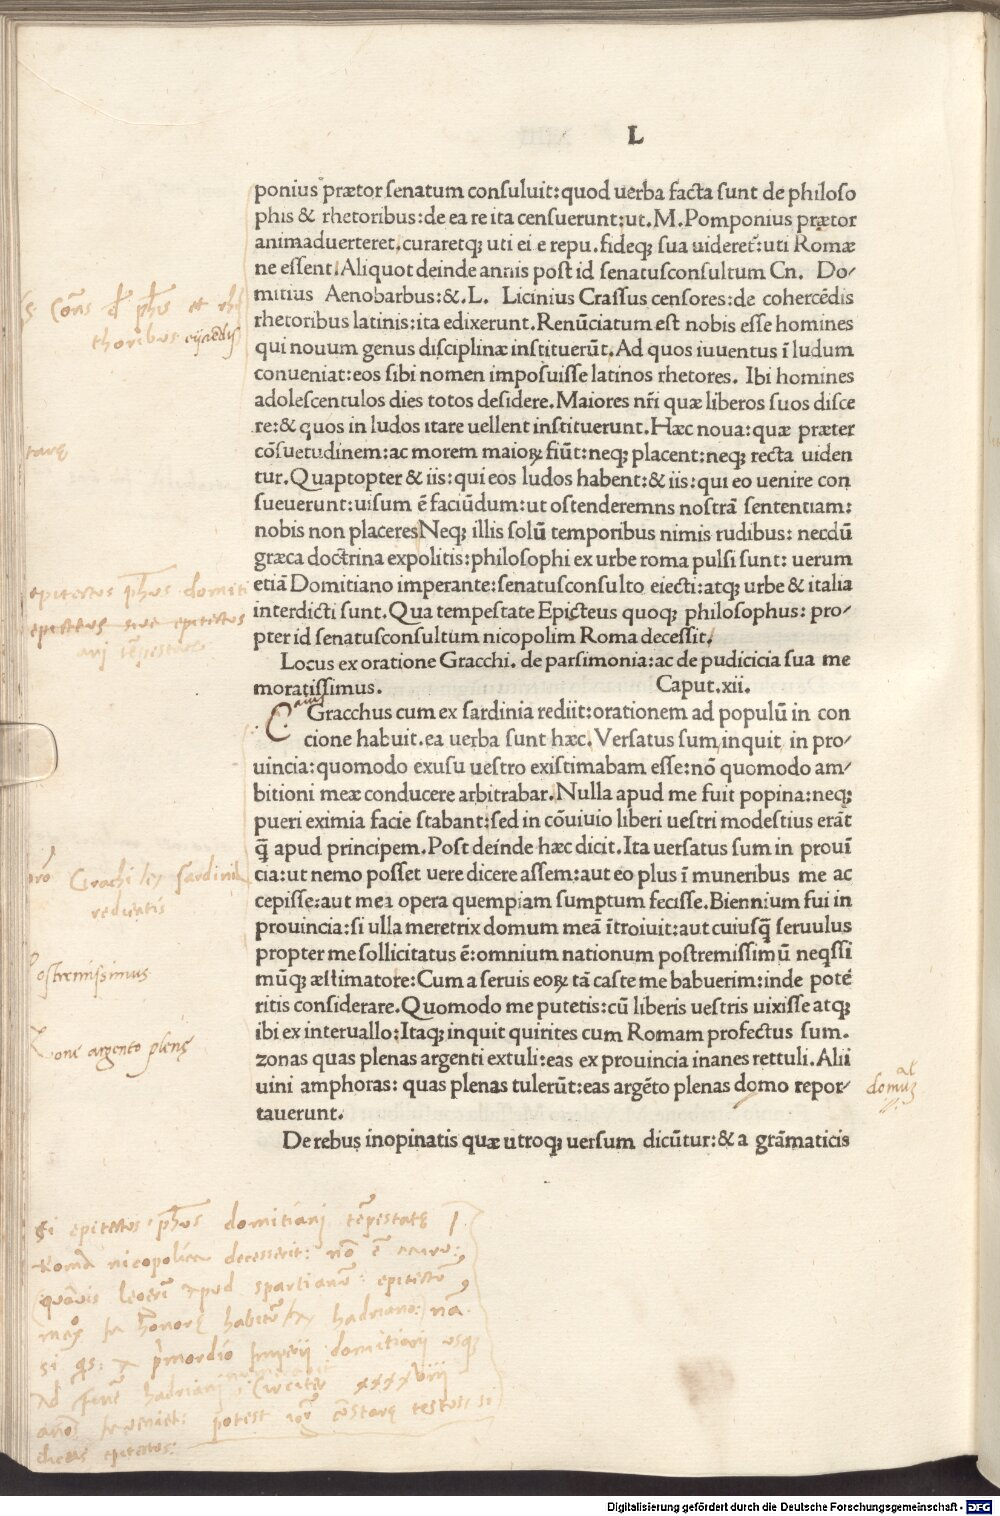 L
ponius prætor senatum consuluit:quod uerba facta sunt de philoso
phis & rhetoribus:de ea re ita censuerunt:ut.M.Pomponius prætor
animaduerteret.curaretqꝫ uti ei e repu.fideqꝫ sua uideret᷑:uti Romæ
ne essent.Aliquot deinde annis post id senatusconsultum Cn. Do/
mitius Aenobarbus:&.L. Licinius Crassus censores:de cohercēdis
rhetoribus latinis:ita edixerunt.Renūciatum est nobis esse homines
qui nouum genus disciplinæ instituerūt.Ad quos iuuentus ī ludum
conueniat:eos sibi nomen imposuisse latinos rhetores. Ibi homines
adolescentulos dies totos desidere.Maiores nr̄i quæ liberos suos disce
re:& quos in ludos itare uellent instituerunt.Hæc noua:quæ præter
cōsuetudinem:ac morem maioꝝ fiūt:neqꝫ placent:neqꝫ recta uiden
tur.Quaptopter & iis:qui eos ludos habent:& iis:qui eo uenire con
sueuerunt:uisum ē faciūdum:ut ostenderemns nostrā sententiam:
nobis non placeres Neqꝫ illis solū temporibus nimis rudibus: necdū
græca doctrina expolitis:philosophi ex urbe roma pulsi sunt: uerum
etiā Domitiano imperante:senatusconsulto eiecti:atqꝫ urbe & italia
interdicti sunt.Qua tempestate Epicteus quoqꝫ philosophus: pro/
pter id senatusconsultum nicopolim Roma decessit.
Locus ex oratione Gracchi. de parsimonia:ac de pudicicia sua me
moratissimus. Caput.xii.
C Gracchus cum ex sardinia rediit:orationem ad populū in con
cione habuit.ea uerba sunt hæc.Versatus sum inquit in pro/
uincia:quomodo exusu uestro existimabam esse:nō quomodo am/
bitioni meæ conducere arbitrabar.Nulla apud me fuit popina:neqꝫ
pueri eximia facie stabant:sed in cōuiuio liberi uestri modestius erāt
q̄ apud principem.Post deinde hæc dicit.Ita uersatus sum in prouī
cia:ut nemo posset uere dicere assem:aut eo plus ī muneribus me ac
cepisse:aut mea opera quempiam sumptum fecisse.Biennium fui in
prouincia:si ulla meretrix domum meā ītroiuit:aut cuiusq̄ seruulus
propter me sollicitatus ē:omnium nationum postremissimū neqssi
mūqꝫ æstimatore:Cum a seruis eoꝝ tā caste me babuerim:inde poté
ritis considerare.Quomodo me putetis:cū liberis uestris uixisse atqꝫ
ibi ex interuallo:Itaqꝫ inquit quirites cum Romam profectus sum.
zonas quas plenas argenti extuli:eas ex prouincia inanes rettuli.Alii
uini amphoras: quas plenas tulerūt:eas argēto plenas domo repor/
tauerunt.
De rebus inopinatis quæ utroqꝫ uersum dicūtur:& a grāmaticis
thoribus
epitectus domiti
epicteus siue epitectus
Gracchi ex sardinia
redeuntis
Postremissimus
Zone argento plenę
al
domum
Si epitectus domitiani
Roma decesserit: nō ē
spartianū: epitectū
hadriano: nā
si domitiani usqꝫ
circiter xxxxviii
potest
dicas epitectus:
Digitalisierung gefördert durch die Deutsche Forschungsgemeinschaft - DFG